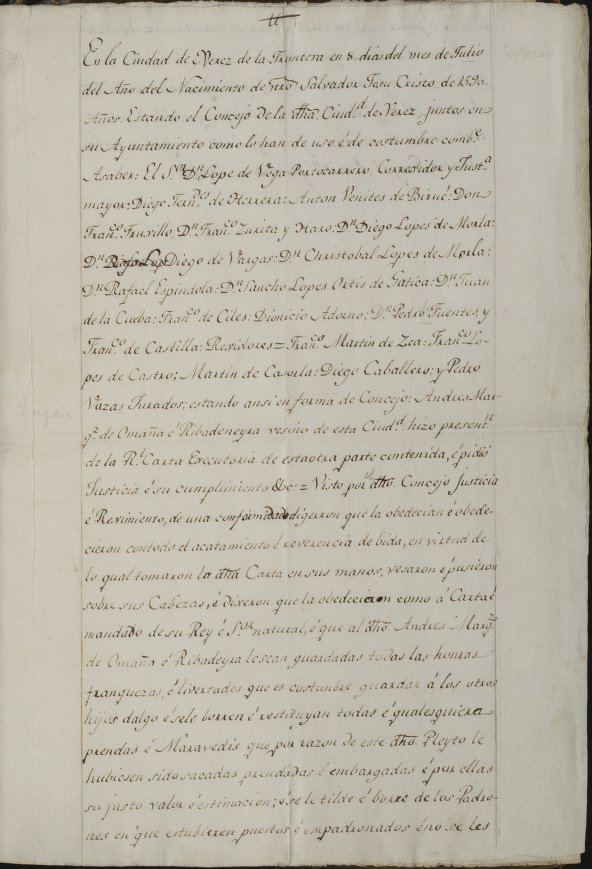 En la Ciudad de Xerez de la Frontera en 8. dias del mes de Julio
del Año del Nacimiento de nro. Salvador Jesu Cristo de 1590
Años. Estando el Concejo de la dha. Ciud.d de Xerez, juntos en
su Ayuntamiento como lo han de uso é de costumbre comb.e
Asaber: El S.or D.n Lope de Vega Portocarrero, Corregidor y Just.a
mayor: Diego Fern.des de Herrera: Anton Venites de Birué: Don
Fran.co Truvillo, D.n Fran.co Zurita y Haro, D.n Diego Lopes de Morla:
D.n Diego de Vargas: D.n Christobal Lopes de Morla:
D.n Rafael Espindola: D.n Sancho Lopes Ortis de Gatica: D.n Juan
de la Cueba: Fran.co de Ciles: Dionicio Adorno: D.n Pedro Fuentes, y
Fran.co de Castilla: Residores = Fran.co Martin de Zea: Fran.co Lo-
pes de Castro; Martin de Casorla: Diego Caballero: y Pedro
Vazas Jurados; estando ansi en forma de Concejo: Andres Mar-
q.z de Omaña é Ribadeneyra vesino de esta Ciud.d hizo present.n
de la R.l Carta Executoria de estaotra parte contenida, é pidió
Justicia é su cumplimiento &c: = Visto por el dho. Concejo Justicia
é Reximiento, de una conformidad digeron que la obedecian é obede-
cieron contodo el acatamiento é reverencia de bida, en virtud de
lo qual tomaron la dha Carta en sus manos, vesaron é pusieron
sobre sus Cabezas, é dixeron que la obedecieron como á Carta é
mandado de su Rey é S.or natural, é que al dho. Andres Marq.z
de Omaña é Ribadeyra le sean guardadas todas las honras
franquezas, é livertades que es costumbre guardar á los otros
hijos dalgo é sele borren é restituyan todas é qualesquiera
prendas é Maravedis que por razon de este dho. Pleyto le
hubiesen sido sacadas prendadas é embargadas é por ellas
su justo valor é estimacion; é se le tilde é borre de los Padro-
nes en que estubieren puestos é empadronados é no se les